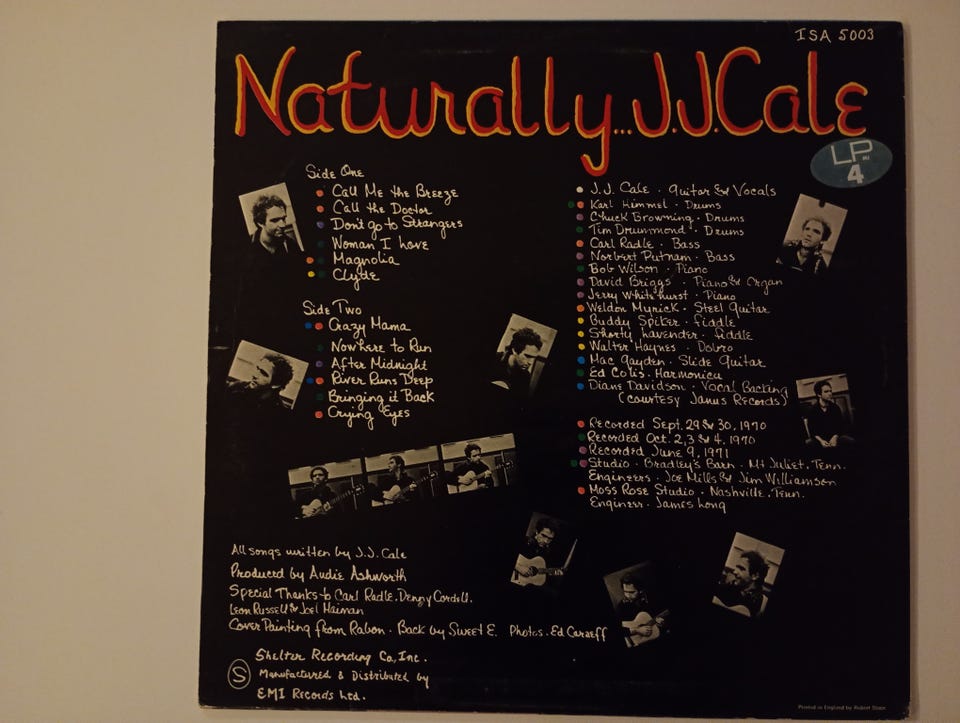 ISA 5003
Naturally...J.J.Cale
LP
4
Side One
Call Me the Breeze
Call the Doctor
Don't go to Strangers
Woman I Love
Magnolia
Clyde
Side Two
Crazy Mama
Nowhere to Run
After Midnight
River Runs Deep
Bringing it Back
Crying Eyes
J.J. Cale · guitar & Vocals
Karl Himmel · Drums
Chuck Browning · Drums
Tim Drummond · Drums
Carl Radle · Bass
Norbert Putnam · Bass
Bob Wilson · Piano
David Briggs · Piano & Organ
Jerry Whitehurst · Piano
Weldon Myrick · Steel Guitar
Buddy Spiker · fiddle
Shorty Lavender · fiddle
Walter Haynes · Dobro
Mac Gayden · Slide Guitar
Ed Colis · Harmonica
Diane Davidson · Vocal Backing
(courtesy Janus Records)
Recorded Sept. 29 & 30, 1970
Recorded Oct. 2, 3 & 4, 1970
Recorded June 9, 1971
Studio · Bradley's Barn · Mt Juliet, Tenn.
Engineers · Joe Mills & Jim Williamson
Moss Rose Studio · Nashville, Tenn.
Engineer · James Long
All songs written by J.J. Cale
Produced by Audie Ashworth
Special Thanks to Carl Radle, Denny Cordell,
Leon Russell & Joel Maiman
Cover Painting from Rabon · Back by Sweet E. Photos · Ed Caraeff
S Shelter Recording Co, Inc.
Manufactured & Distributed by
EMI Records Ltd.
Printed in England by Robert Stace